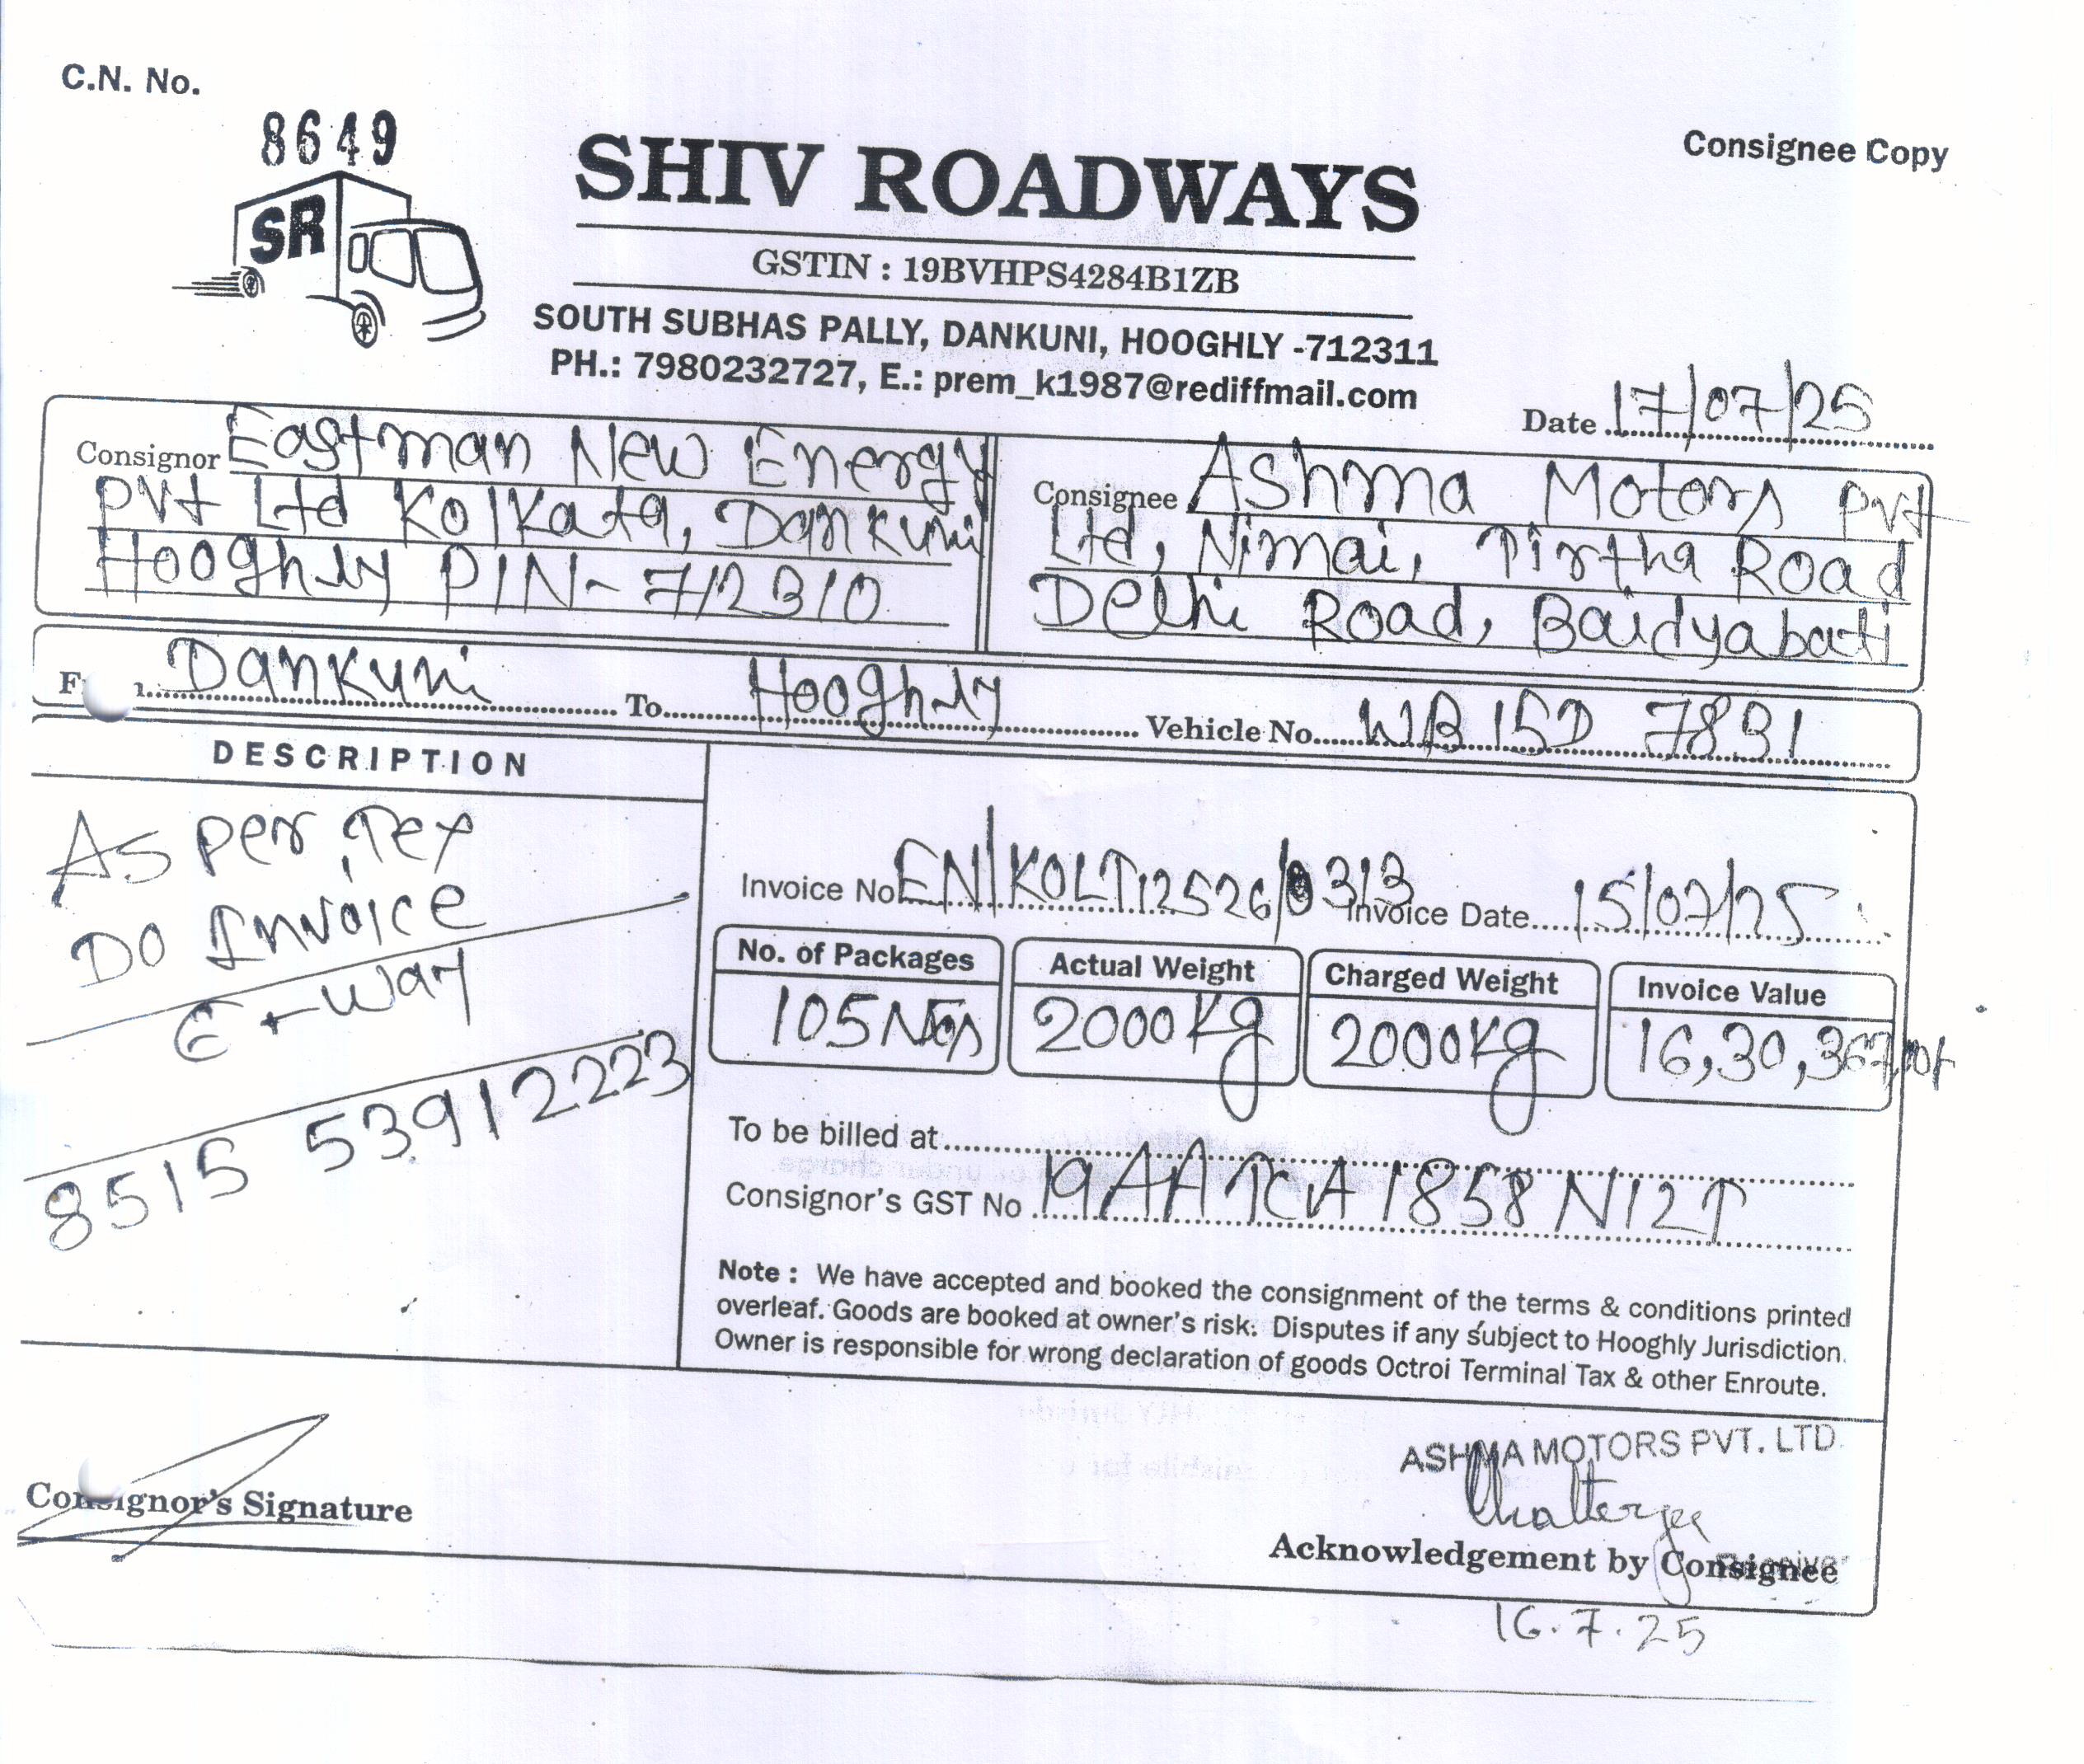 C.N. No.
8649
Consignee Copy
SR
SHIV ROADWAYS
GSTIN : 19BVHPS4284B1ZB
SOUTH SUBHAS PALLY, DANKUNI, HOOGHLY -712311
PH.: 7980232727, E.: prem_k1987@rediffmail.com
Date 17/07/25
Consignor Eastman New Energy
Pvt Ltd Kolkata, Dankuni
Hooghly PIN-712310
Consignee Ashma Motors Pvt
Ltd, Nimai, Tirtha Road
Delhi Road, Baidyabati
Dankuni To Hooghly Vehicle No. WB15D 7831
DESCRIPTION
As per Tex
DO Invoice
E-way
8515 53912223
Invoice No EN/KOLT/2526/0313 Invoice Date 15/07/25
No. of Packages Actual Weight Charged Weight Invoice Value
105 Nos 2000 Kg 2000 Kg 16,30,367
To be billed at
Consignor's GST No
Note : We have accepted and booked the consignment of the terms & conditions printed
overleaf. Goods are booked at owner's risk. Disputes if any subject to Hooghly Jurisdiction.
Owner is responsible for wrong declaration of goods Octroi Terminal Tax & other Enroute.
Consignor's Signature
ASHMA MOTORS PVT. LTD.
Chatterjee
Acknowledgement by Consignee
16.7.25